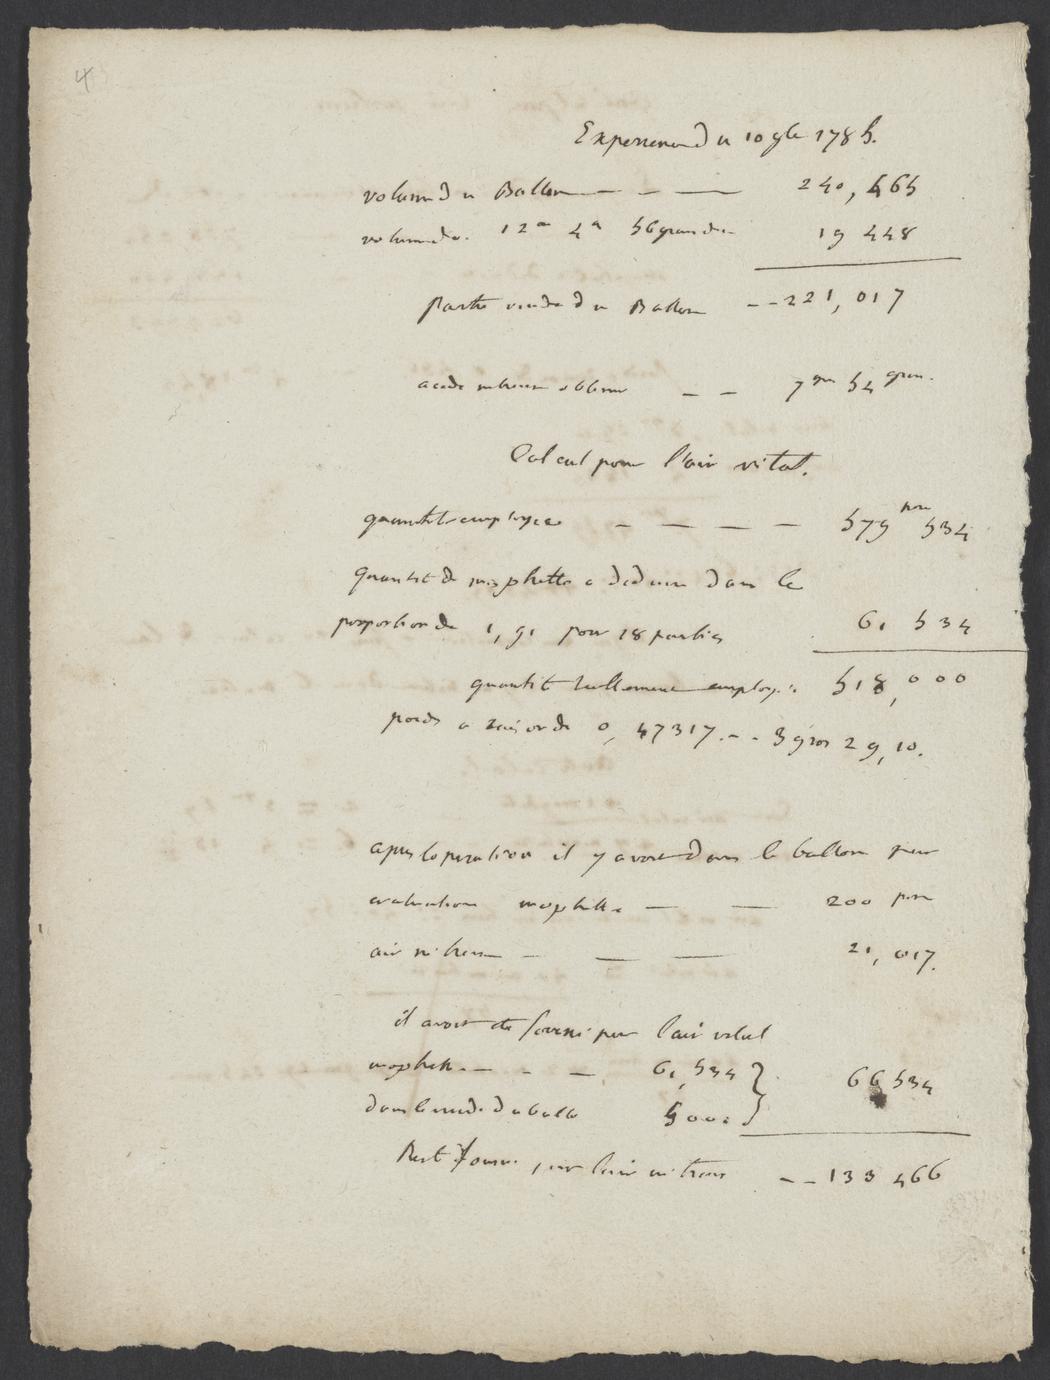 4
Experience du 10 9bre 1785.
volume du Ballon — — — 240,465
volume de 12 on 4 g 56 grains de 19 448
partie vuide du Ballon -- 221,017
acide nitreux obtenu — — 7 gros 54 grains.
Calcul pour l'air vital.
quantité employée — — — — 579 pou 534
quantité de mophette a deduire dans la
proportion de 1,91 pour 18 parties 61 534
quantité reellement employée 518,000
poids a raison de 0,47317. -- 3 gros 29,10.
apres l'operation il y avoit dans le ballon par
evaluation mophette — — 200 pou
air nitreux — — — 21,017.
il avoit été fourni par l'air vital
mophette — - — 61,534 } 66 534
dans le vuide du ballon 5000
Reste fourni par l'air nitreux -- 133 466